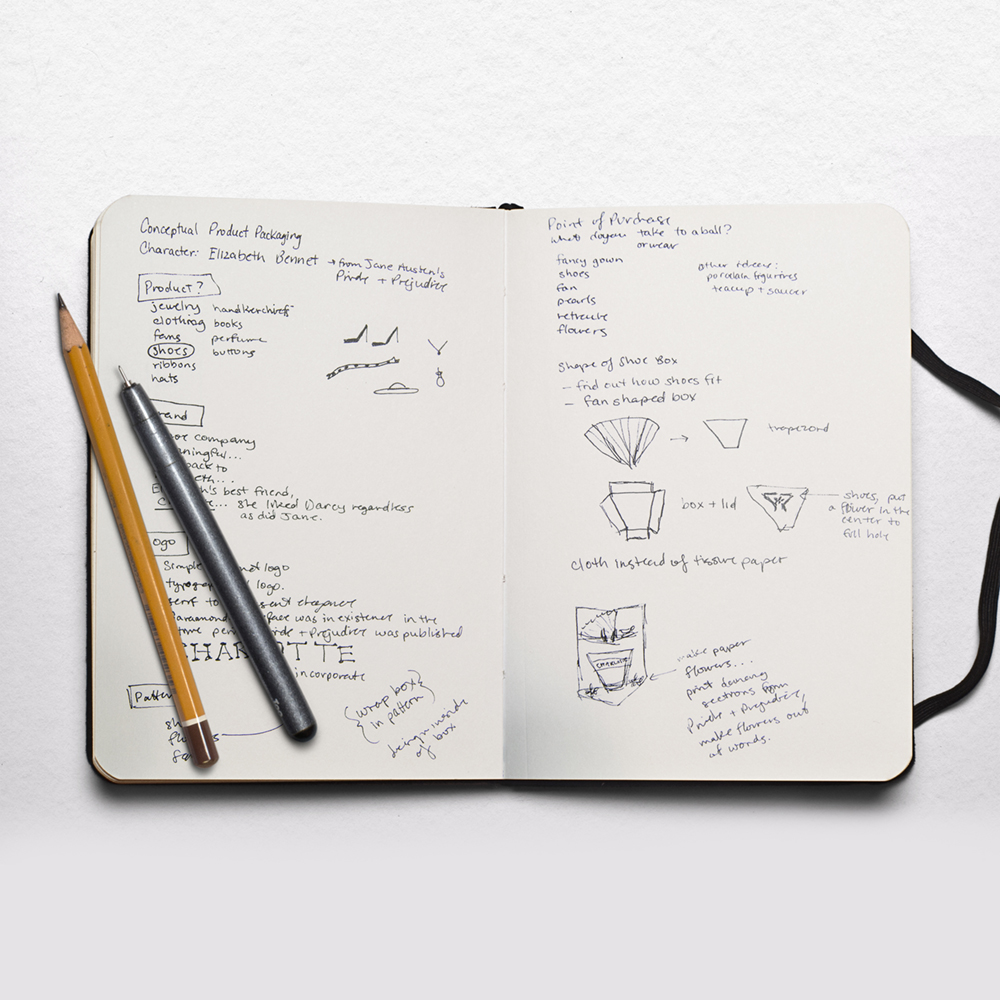 Conceptual Product Packaging
Character: Elizabeth Bennet → from Jane Austen's
Pride + Prejudice
Product?
jewelry handkerchiefs
clothing books
fans perfume
shoes buttons
ribbons
hats
company
back to
best friend,
... she liked Darcy regardless
as did Jane.
logo
logo.
was in existence in the
Prejudice was published
CHARLOTTE
incorporate
{wrap box}
{in pattern}
design inside
of box
Point of Purchase
what do you take to a ball?
or wear
fancy gown
shoes
fan
pearls
reticule
flowers
other ideas:
porcelain figurines
teacup + saucer
Shape of Shoe Box
- find out how shoes fit
- fan shaped box
→ trapezoid
box + lid
shoes, put
a flower in the
center to
fill hole
cloth instead of tissue paper
CHARLOTTE
make paper
flowers...
print
sections from
Pride + Prejudice,
make flowers out
of words.